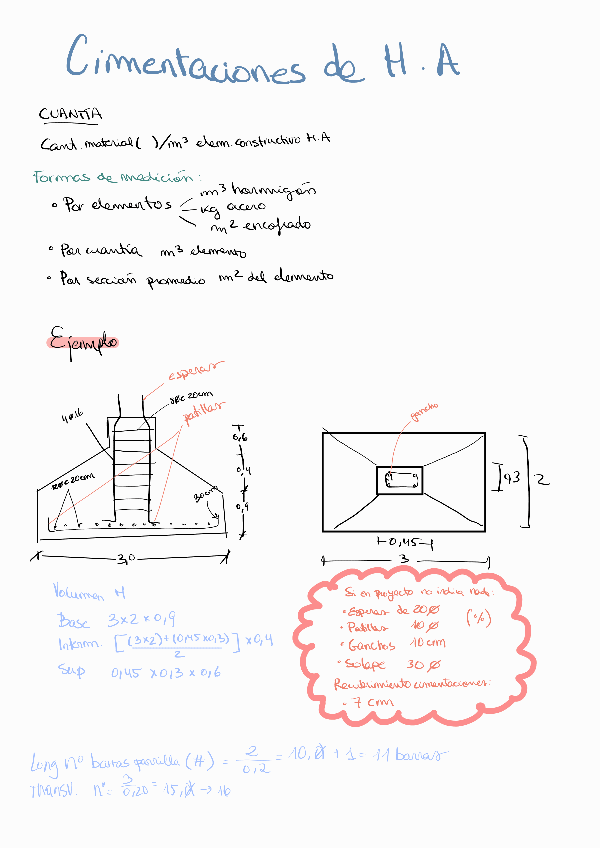 Cimentaciones de H.A
CUANTÍA
Cant. material ( )/m³ elem. constructivo H.A
Formas de medición:
• Por elementos m³ hormigón
kg acero
m² encofrado
• Por cuantía m³ elemento
• Por sección promedio m² del elemento
Ejemplo
esperas
20cm
patillas
4ø16
20cm
30cm
0,6
0,4
0,9
3,0
gancho
0,45
3
2
Volumen H
Base 3x2x0,9
Interm. [(3x2)+(0,45x0,3)/2] x0,4
Sup 0,45 x0,3 x 0,6
Si en proyecto no indica nada:
• Esperas de 20ø
• Patillas 10ø (%)
• Ganchos 10cm
• Solape 30ø
Recubrimiento cimentaciones:
- 7 cm
Long nº barras parrilla (H) = 2/0,2 = 10, + 1 = 11 barras
Transv. nº: 3/0,20 = 15, → 16